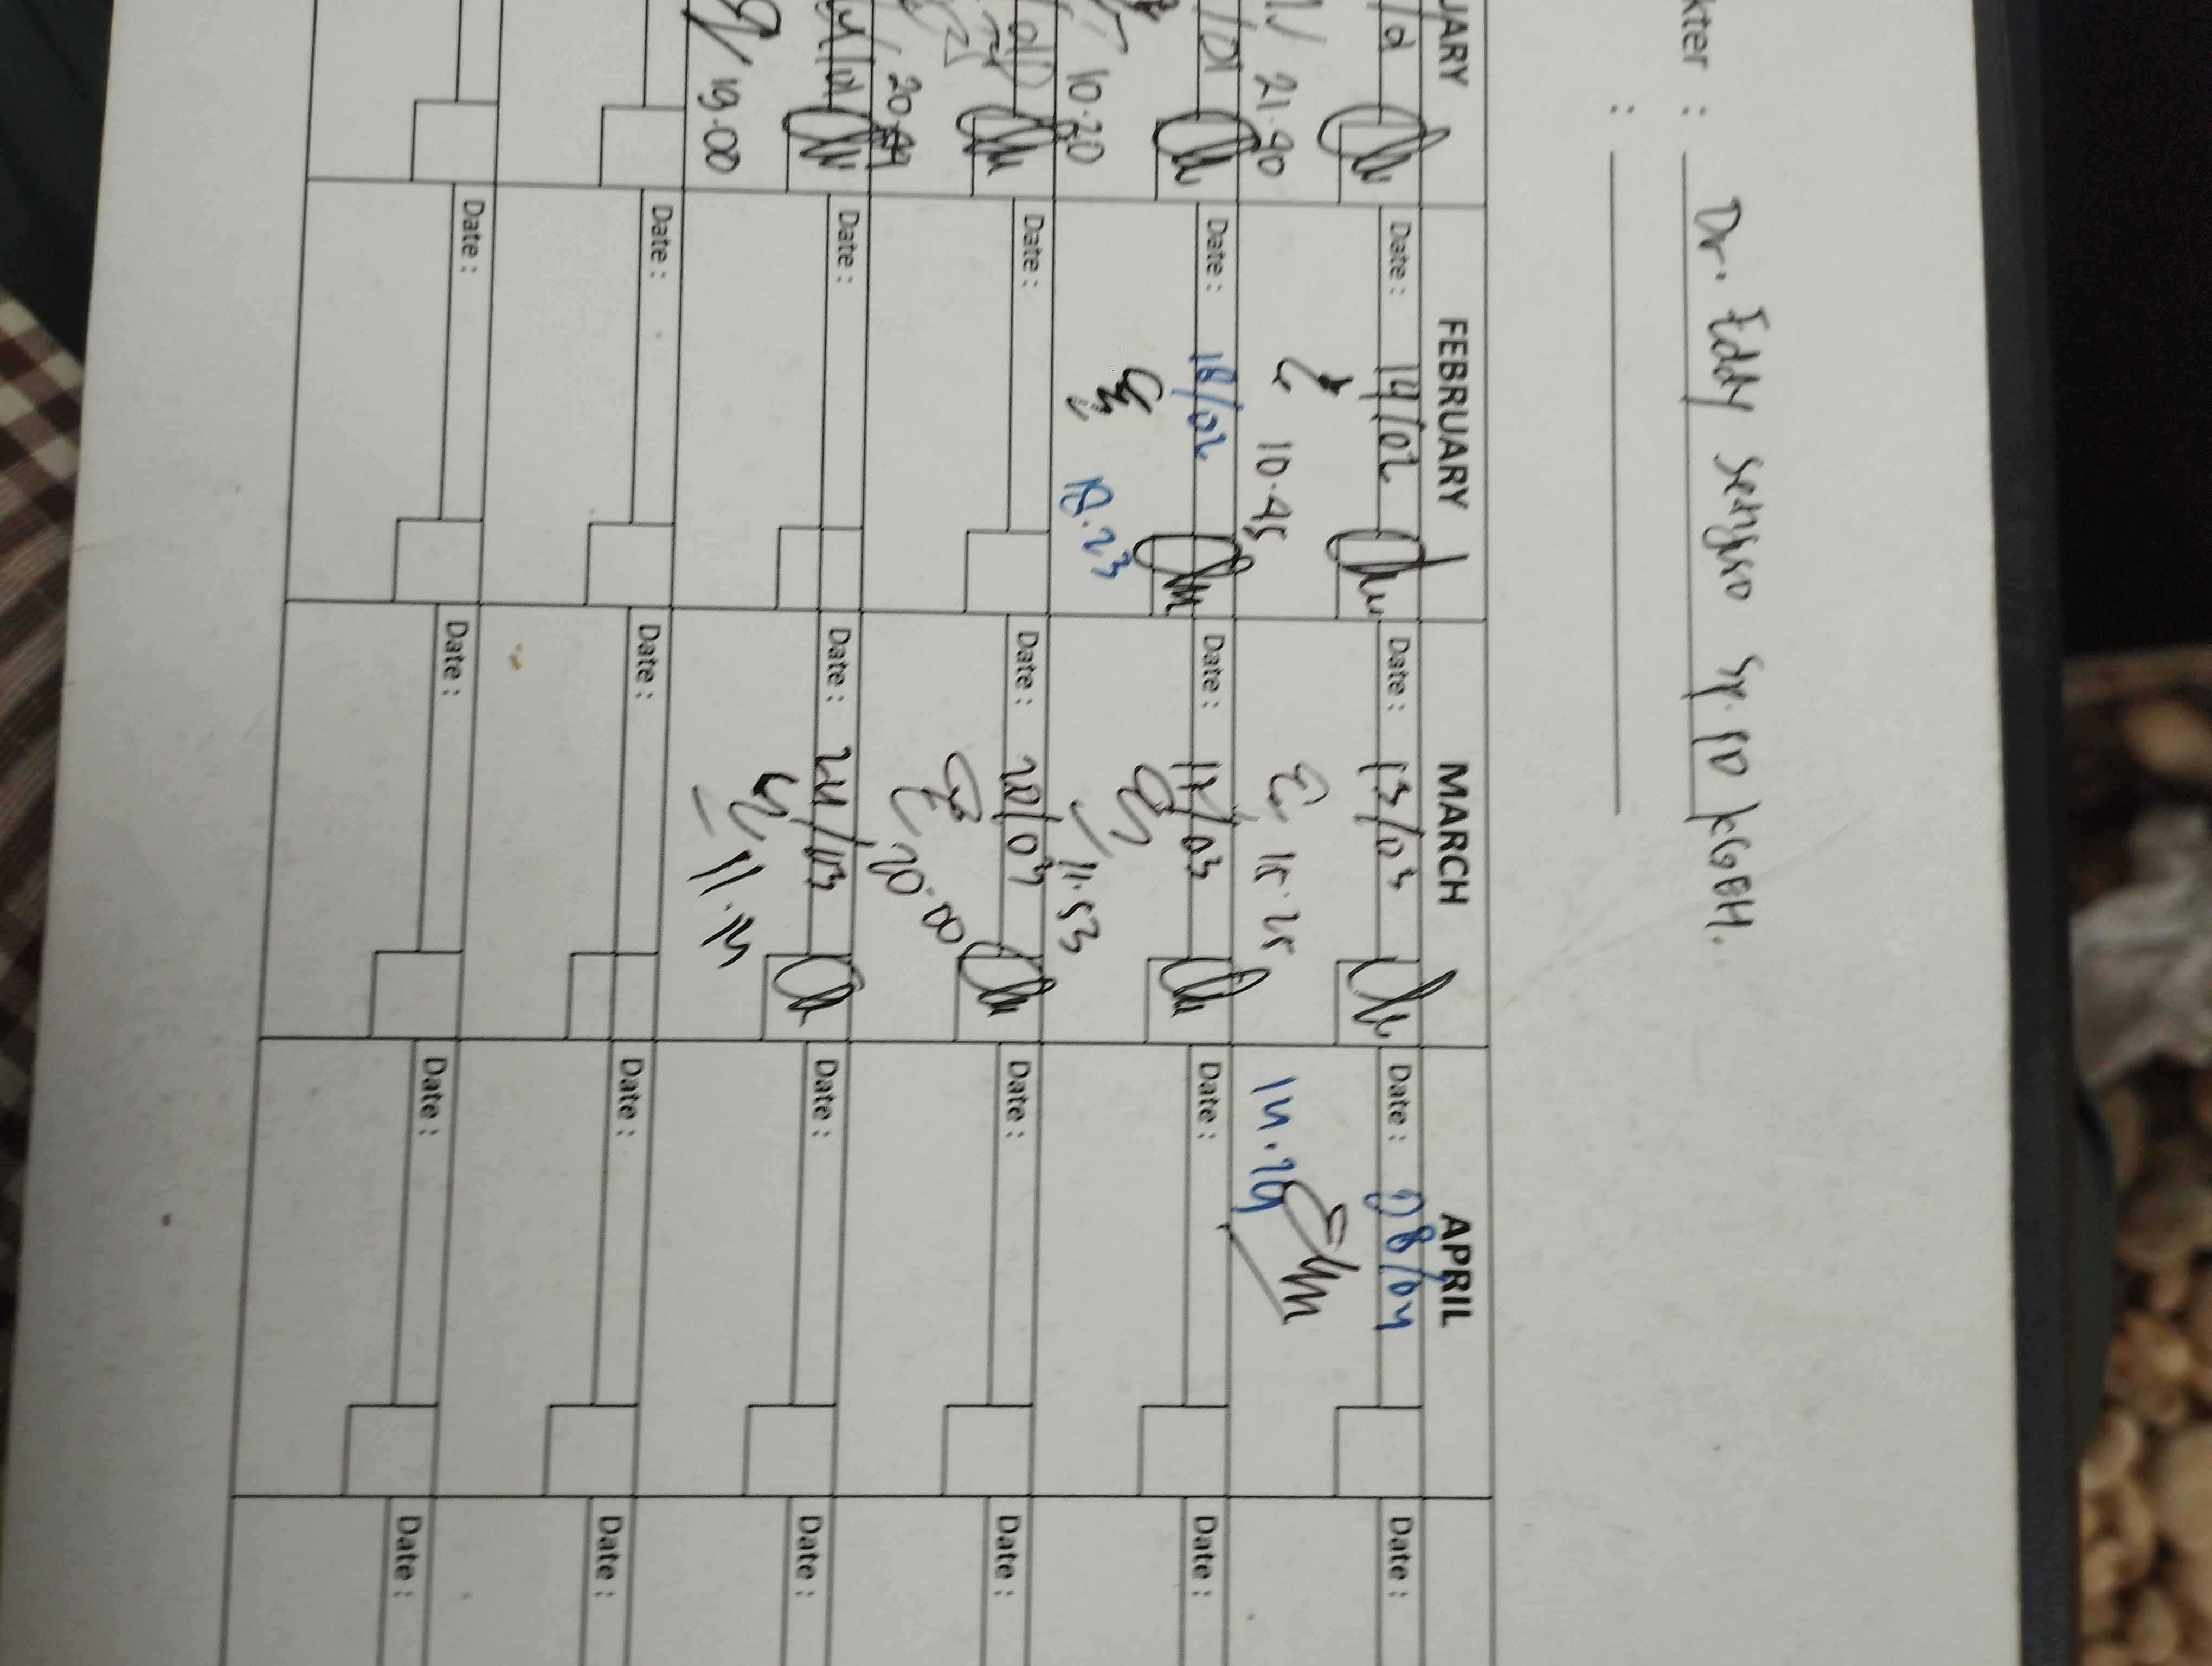 kter : Dr. Eddy Sp. PD KGEH.
:
UARY FEBRUARY MARCH APRIL
Date : 14/02 Date : 13/03 Date : 08/04 Date :
21.40 10.45 15.25 14.29
Date : 18/02 Date : 17/03 Date : Date :
10.20 18.23 11.53
Date : Date : 20/03 Date : Date :
20.00
Date : Date : 24/03 Date : Date :
19.00 11.23
Date : Date : Date : Date :
Date : Date : Date : Date :